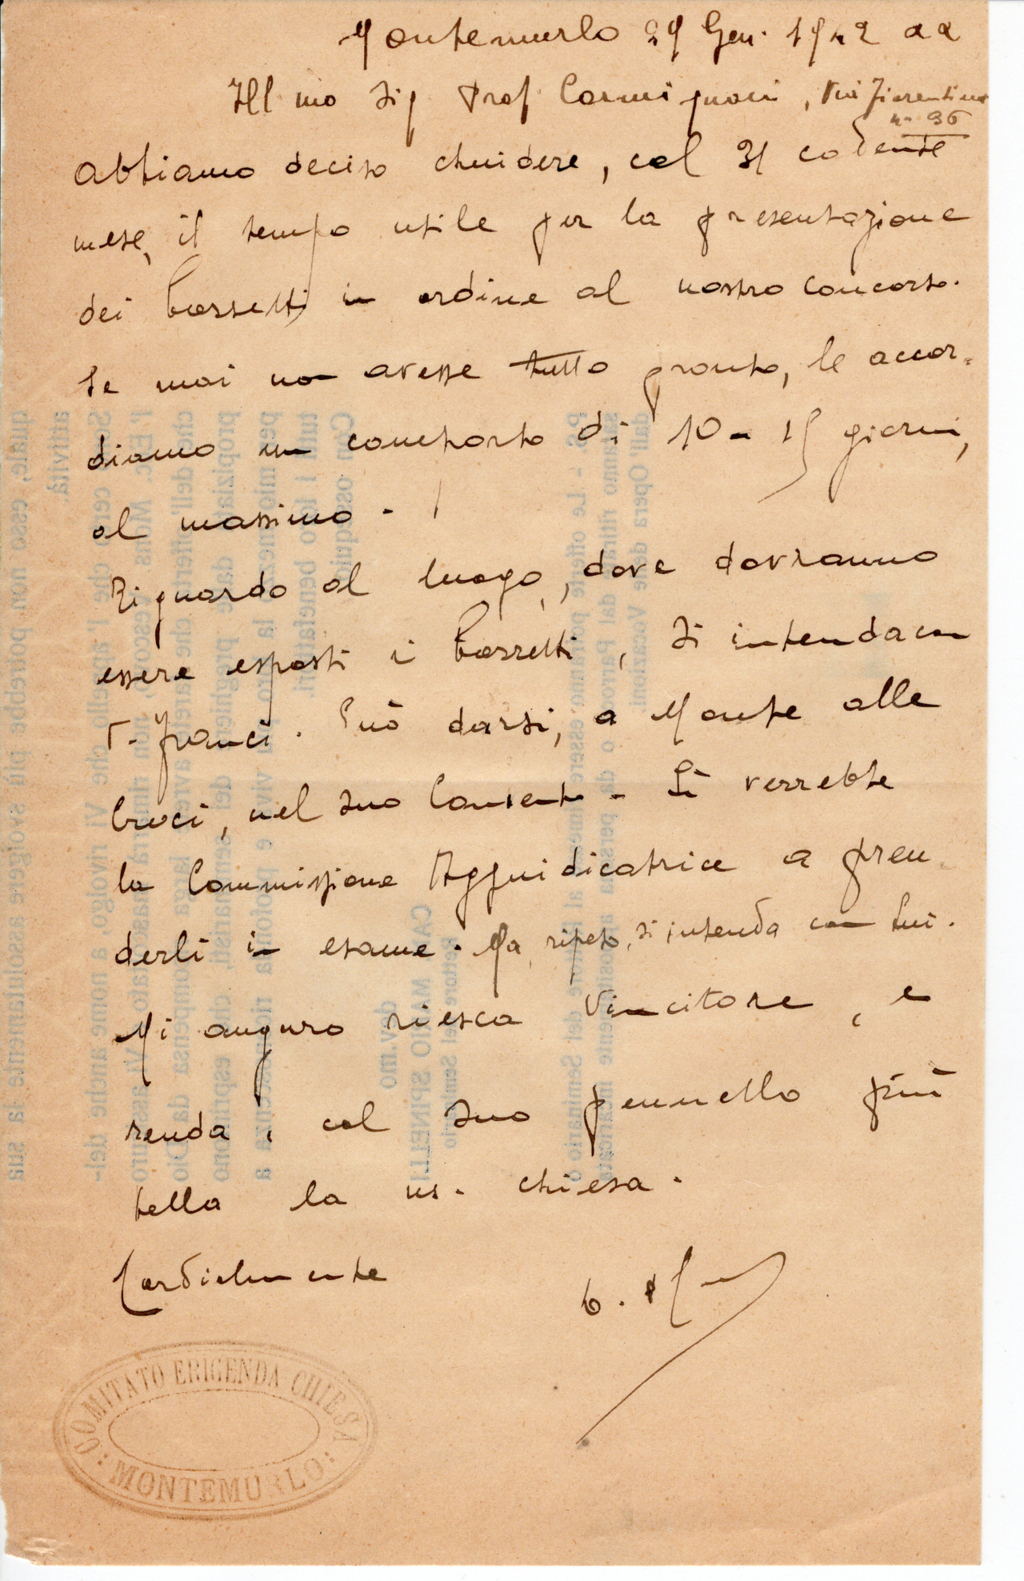 Montemurlo 29 Gen. 1942 XX
Ill mo Sig Prof Carmignani, Via Fiorentina
n. 96
Abbiamo deciso chiudere, col 31 cadente
mese, il tempo utile per la presentazione
dei bozzetti in ordine al nostro concorso.
Se mai non avesse tutto pronto, le accor-
diamo un comporto di 10 - 15 giorni,
al massimo -
Riguardo al luogo, dove dovranno
essere esposti i bozzetti, si intenda con
P. Franci. Può darsi, a Monte alle
Croci, nel suo Convento - Lì verrebbe
la Commissione Aggiudicatrice a pren
derli in esame. Ma, ripeto, si intenda con Lui.
Mi auguro riesca Vincitore, e
renda, col suo pennello più
bella la ns. chiesa.
Cordialmente
COMITATO ERIGENDA CHIESA
MONTEMURLO